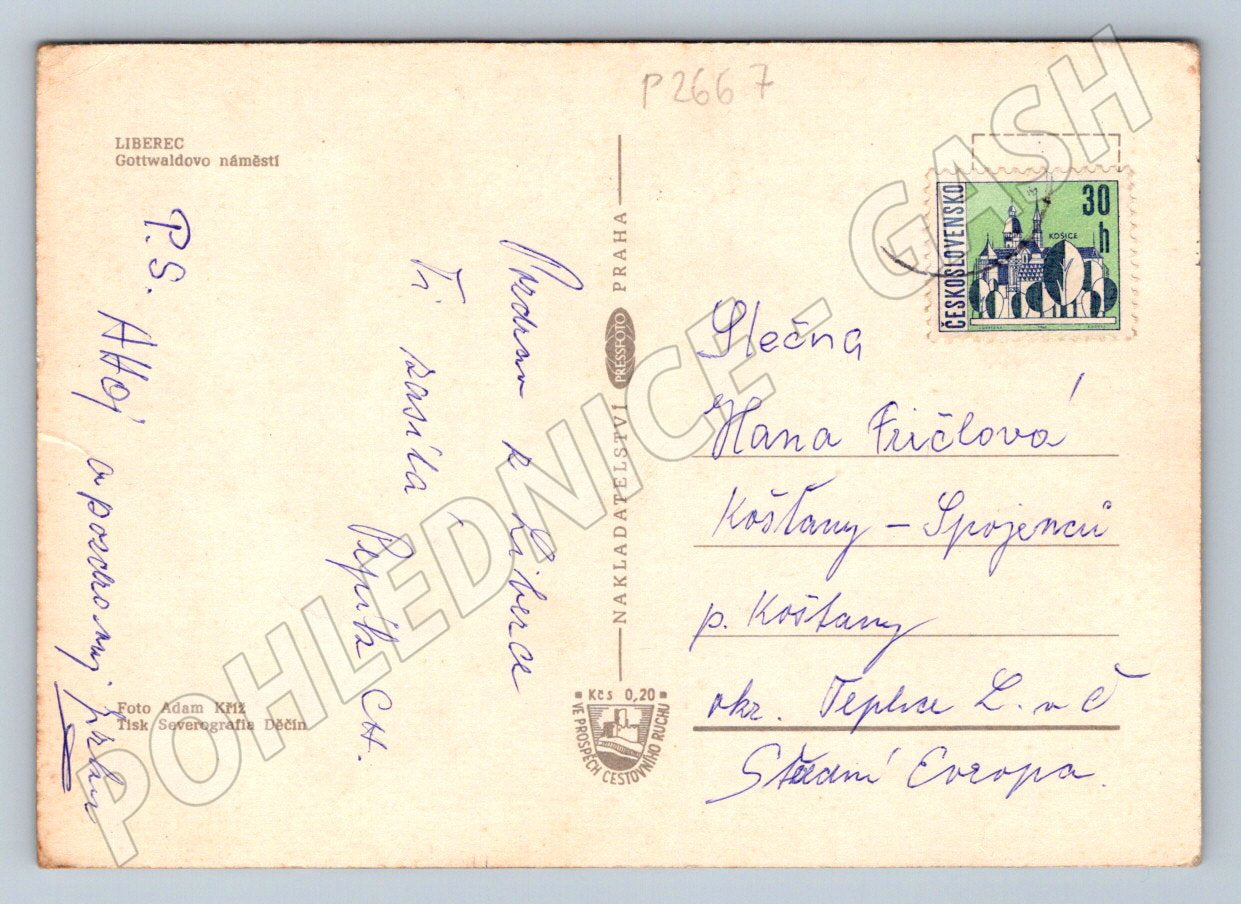 P 2667
LIBEREC
Gottwaldovo náměstí
ČESKOSLOVENSKO
30
h
KOŠICE
Pozdrav z Liberce
Ti zasílá
Pepík CH.
P.S. AHOJ a pozdravuj
Foto Adam Kříž
Tisk Severografia Děčín
NAKLADATELSTVÍ PRESSFOTO PRAHA
Kčs 0,20
VE PROSPĚCH CESTOVNÍHO RUCHU
Slečna
Hana Fričlová
Košťany – Spojenců
p. Košťany
okr. Teplice L. v Č
Střední Evropa.
POHLEDNICE - GASH